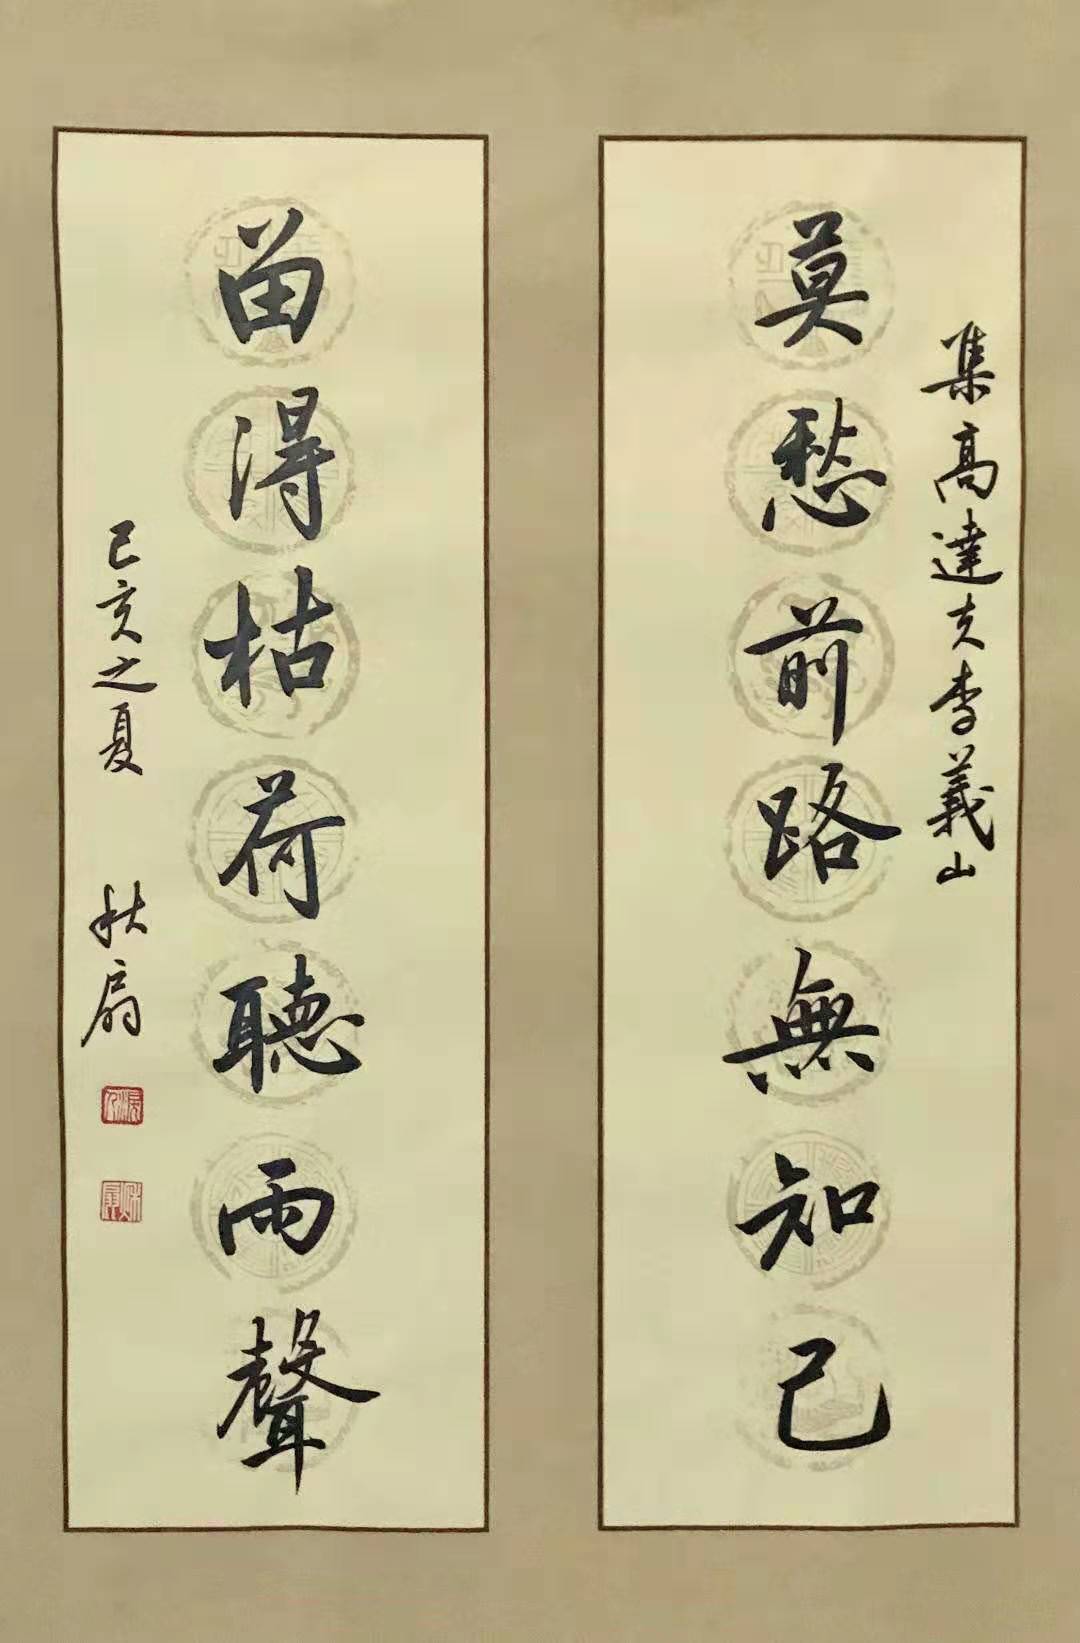 集高達夫李義山
莫愁前路無知己
留得枯荷聽雨聲
己亥之夏 秋扇